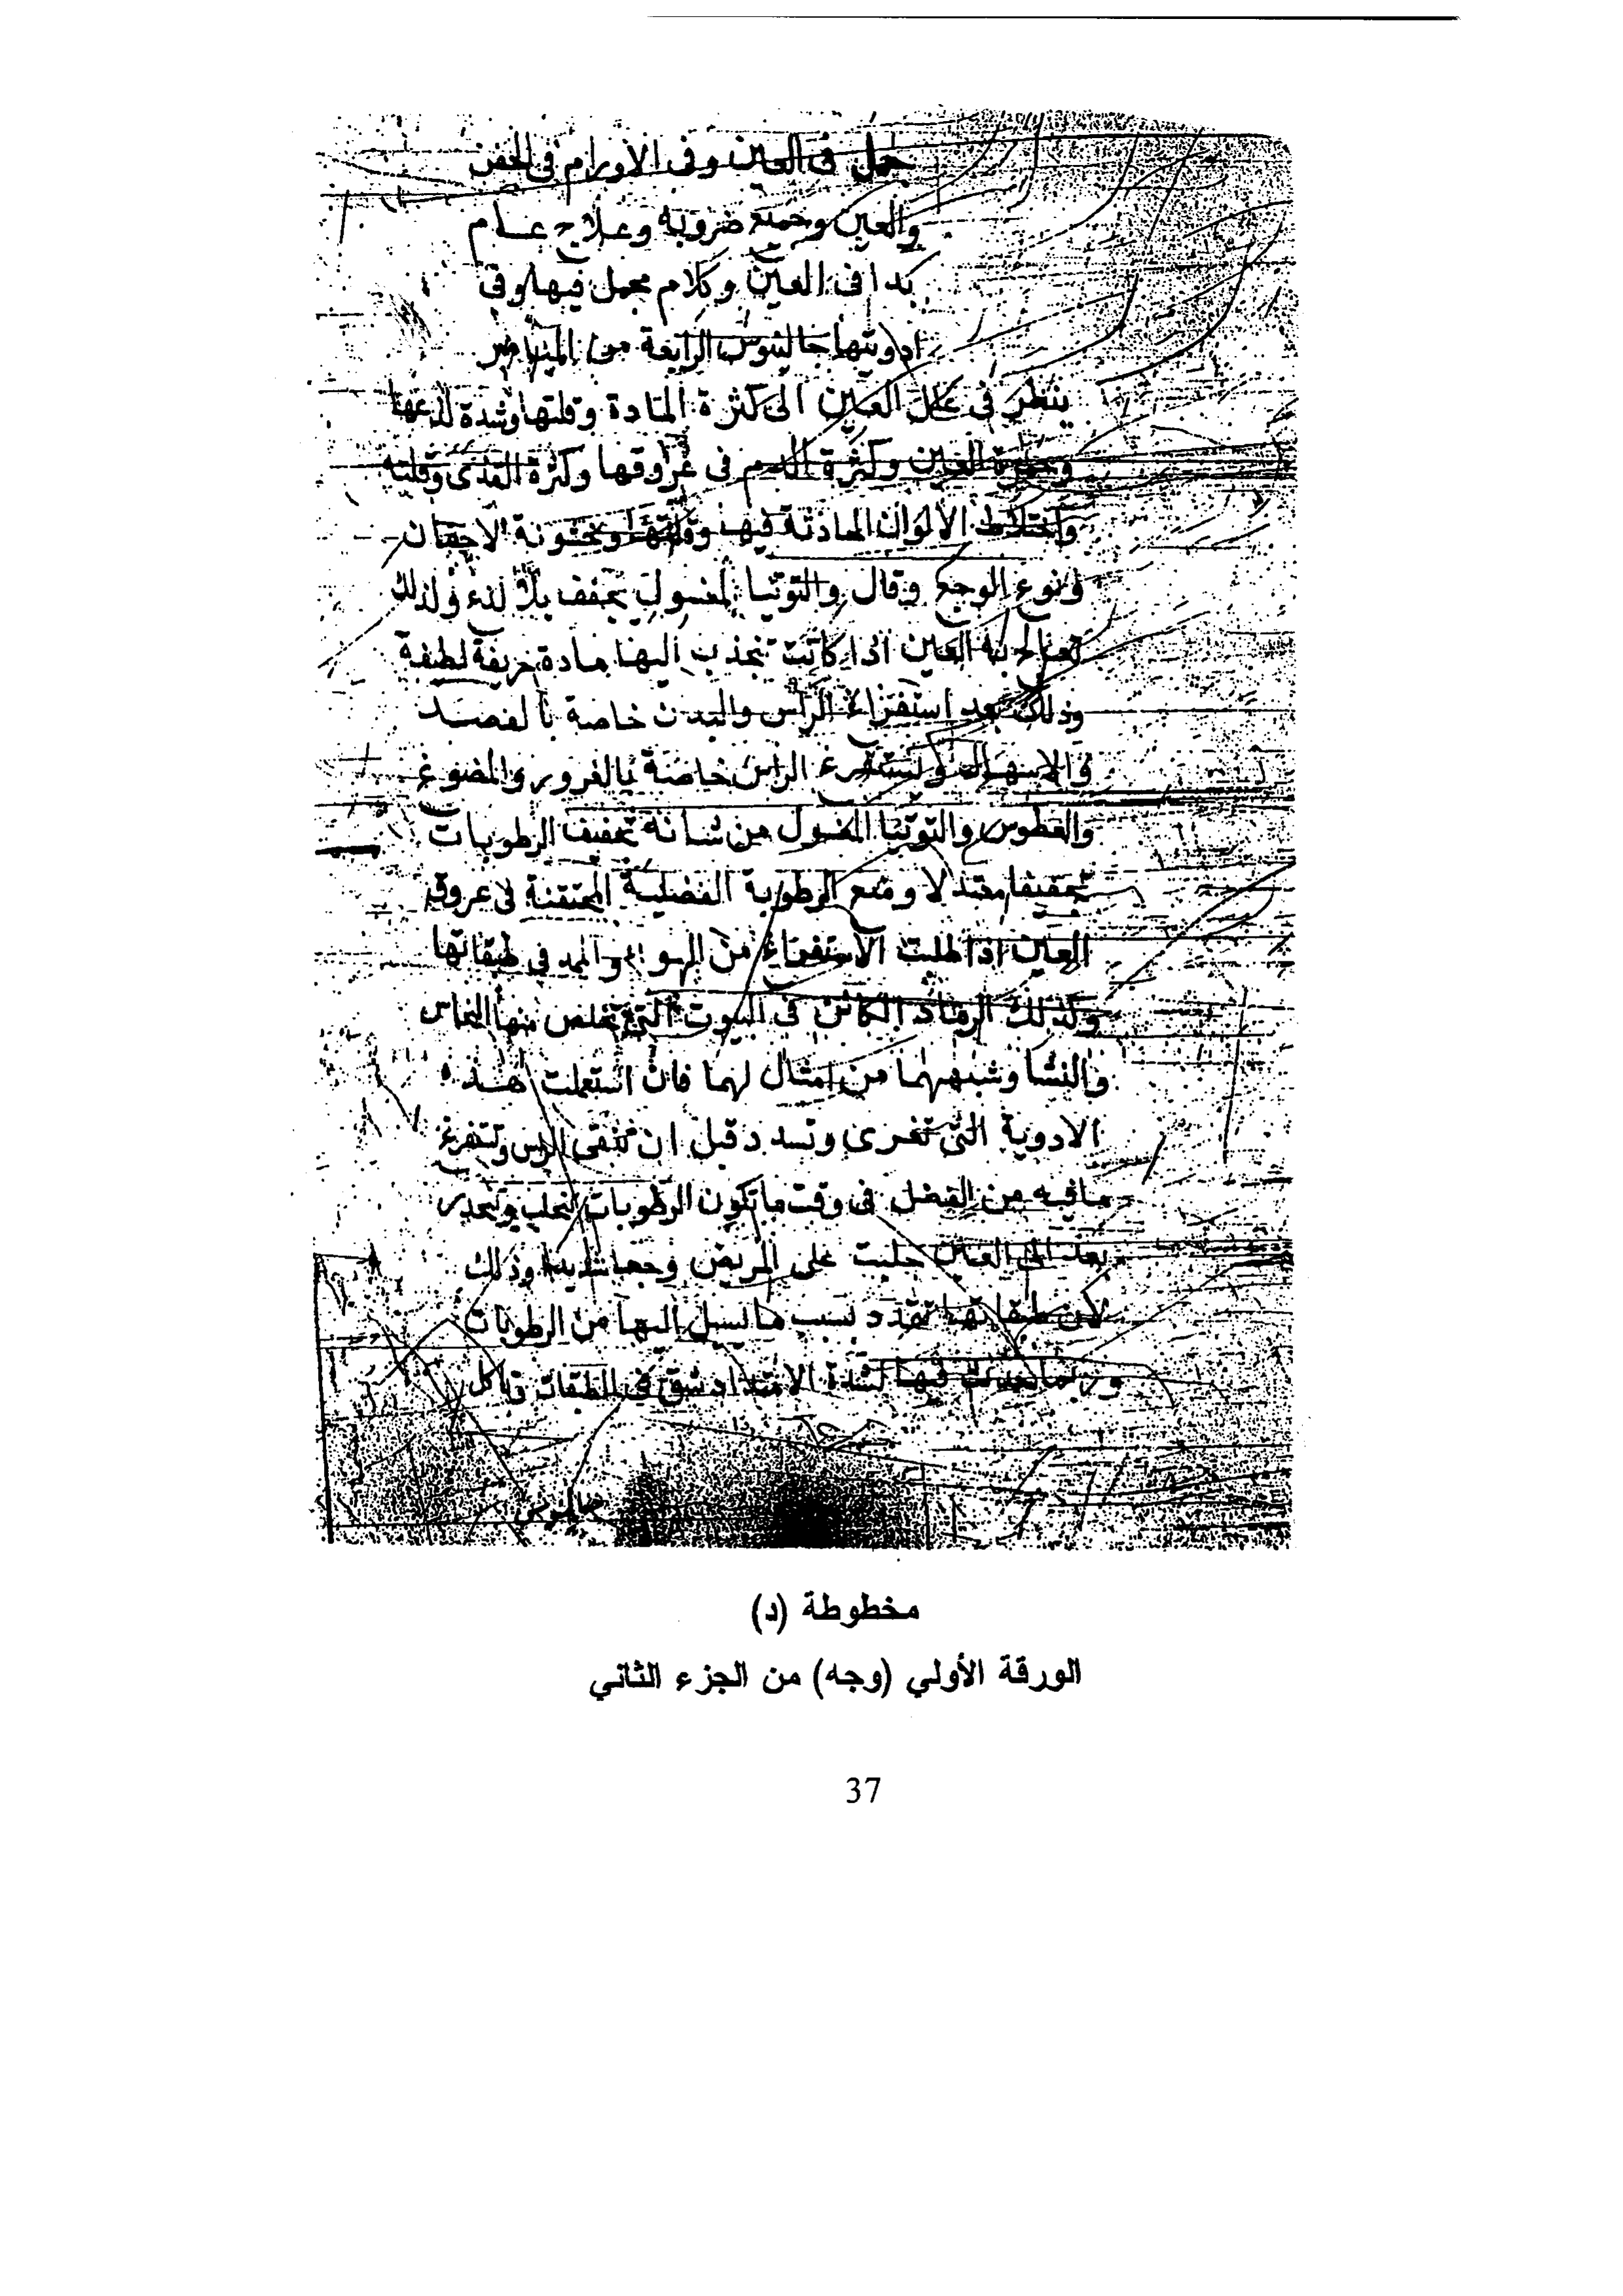 جمل فى العين وفى الاورام فى الجفن
والعين وجميع ضروبه وعلاج عام
فى العين وكلام مجمل فيها وفى
ادويتها جالينوس الرابعة من الميامر
ينظر فى علل العين الى كثرة المادة وقلتها وشدة لذعها
وحمرة العين وكثرة الدم فى عروقها وكثرة القذى وقلته
واختلاط الالوان الحادثة فيها وقلتها وبخشونة الاجفان
ونوع الوجع وقال والتوتيا المغسول يجفف بلا لذع ولذلك
تعالج به العين اذا كانت تنجذب اليها مادة حريفة لطيفة
وذلك بعد استفراغ الراس والبدن خاصة بالفصد
والاسهال وليستفرغ الراس خاصة بالغرور والمضوغ
والعطوس والتوتيا المغسول من شانه تجفيف الرطوبات
تجفيفا معتدلا ومنع الرطوبة الفضلية المحتقنة فى عروق
العين اذا طلبت الاستفراغ من فى طبقاتها
وكذلك الرماد الكائن فى البيوت التى تخلص منها النحاس
والنشا وشبههما من امثال لهما فان استعملت هذه
الادوية التى تغرى وتسدد قبل ان تنقى الراس وتستفرغ
ما فيه من الفضل فى وقت ما تكون الرطوبات تنحلب وتنحدر
بعد الى العين جلبت على المريض وجعا شديدا وذلك
لان طبقاتها تمدد بسبب ما يسيل اليها من الرطوبات
وربما حدث فيها لشدة الامتداد شق فى الطبقات وتاكل
مخطوطة (د)
الورقة الأولي (وجه) من الجزء الثاني
37